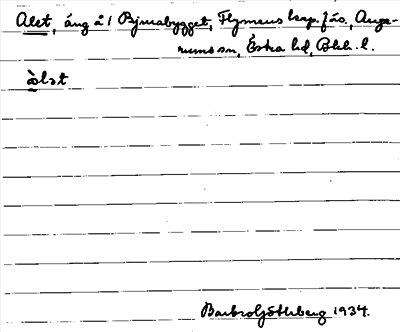 Alet, äng å 1 Bjurabygget, Flymens kap.förs., Auge-
rums sn, Östra hd, Blek. l.
àlət
Barbro Göthberg 1934.